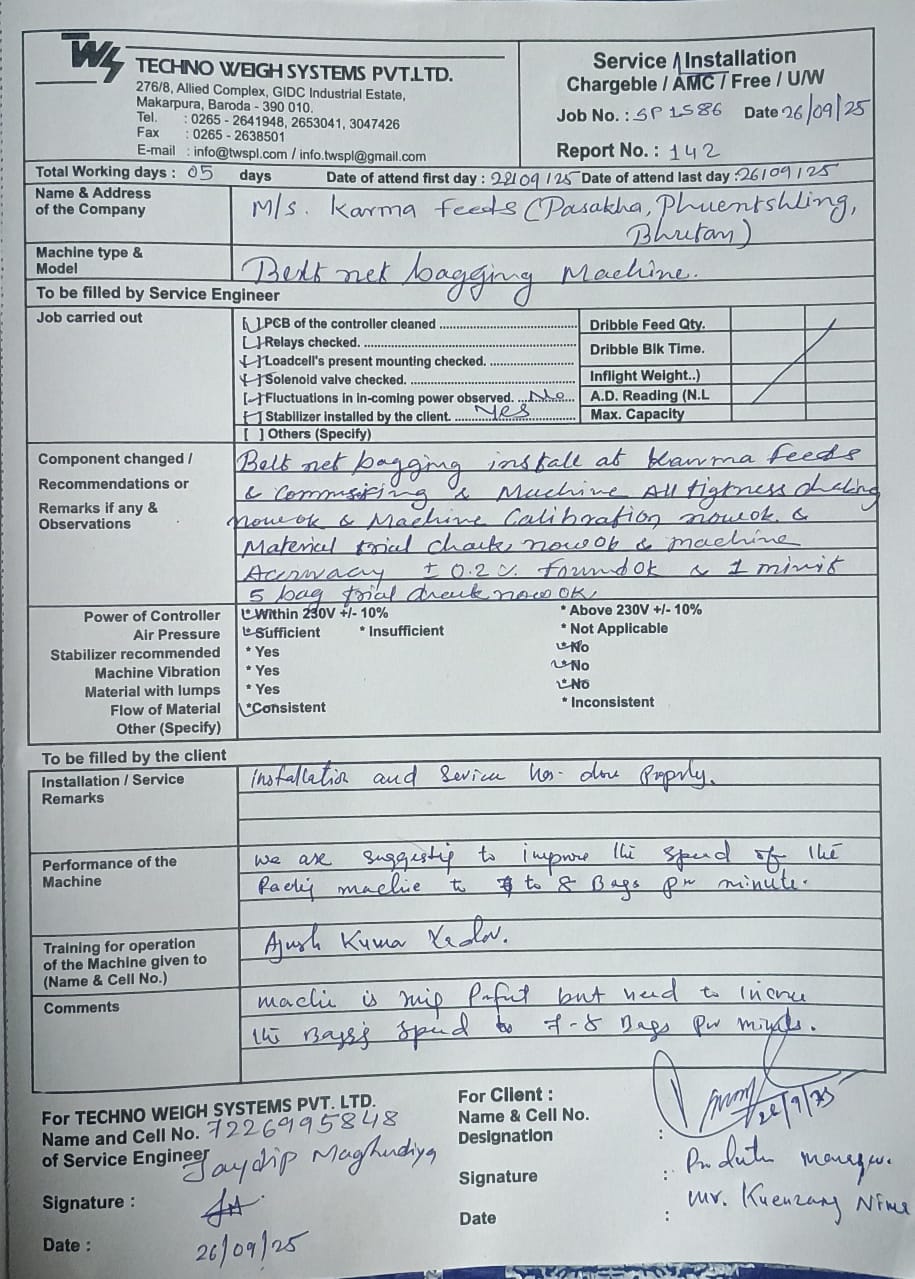 TWS
TECHNO WEIGH SYSTEMS PVT.LTD.
276/8, Allied Complex, GIDC Industrial Estate,
Makarpura, Baroda - 390 010.
Tel. : 0265 - 2641948, 2653041, 3047426
Fax : 0265 - 2638501
E-mail : info@twspl.com / info.twspl@gmail.com
Service / Installation
Chargeble / AMC / Free / U/W
Job No. : SP 1586 Date 26/09/25
Report No. : 142
Total Working days : 05 days Date of attend first day : 22/09/25 Date of attend last day : 26/09/25
Name & Address
of the Company
M/s. Karma feeds (Pasakha, Phuentshling,
Bhutan)
Machine type &
Model
Belt net bagging Machine.
To be filled by Service Engineer
Job carried out
[ ] PCB of the controller cleaned
[ ] Relays checked.
[ ] Loadcell's present mounting checked.
[ ] Solenoid valve checked.
[ ] Fluctuations in in-coming power observed. No
[ ] Stabilizer installed by the client. Yes
[ ] Others (Specify)
Dribble Feed Qty.
Dribble Blk Time.
Inflight Weight..)
A.D. Reading (N.L
Max. Capacity
Component changed /
Recommendations or
Remarks if any &
Observations
Belt net bagging install at karma feeds
& & Machine All tigtness
now ok & Machine Calibration now ok. &
Material trial now ok & machine
± 0.2 found ok & 1 minit
5 bag trial now ok.
Power of Controller * Within 230V +/- 10% * Above 230V +/- 10%
Air Pressure * Sufficient * Insufficient * Not Applicable
Stabilizer recommended * Yes * No
Machine Vibration * Yes * No
Material with lumps * Yes * No
Flow of Material * Consistent * Inconsistent
Other (Specify)
To be filled by the client
Installation / Service
Remarks
Installation and Service has done Properly.
Performance of the
Machine
we are suggesting to improve the speed of the
machine to to 8 Bags per minute.
Training for operation
of the Machine given to
(Name & Cell No.)
Ayush Kumar
Comments
machine is but need to
the speed to 7-8 Bags per
For TECHNO WEIGH SYSTEMS PVT. LTD.
Name and Cell No. 7226995848
of Service Engineer Jaydip Maghudiya
Signature :
Date : 26/09/25
For Client :
Name & Cell No.
Designation :
Signature :
Date :
26/9/25
manager.
Mr. Kuenzang Nima